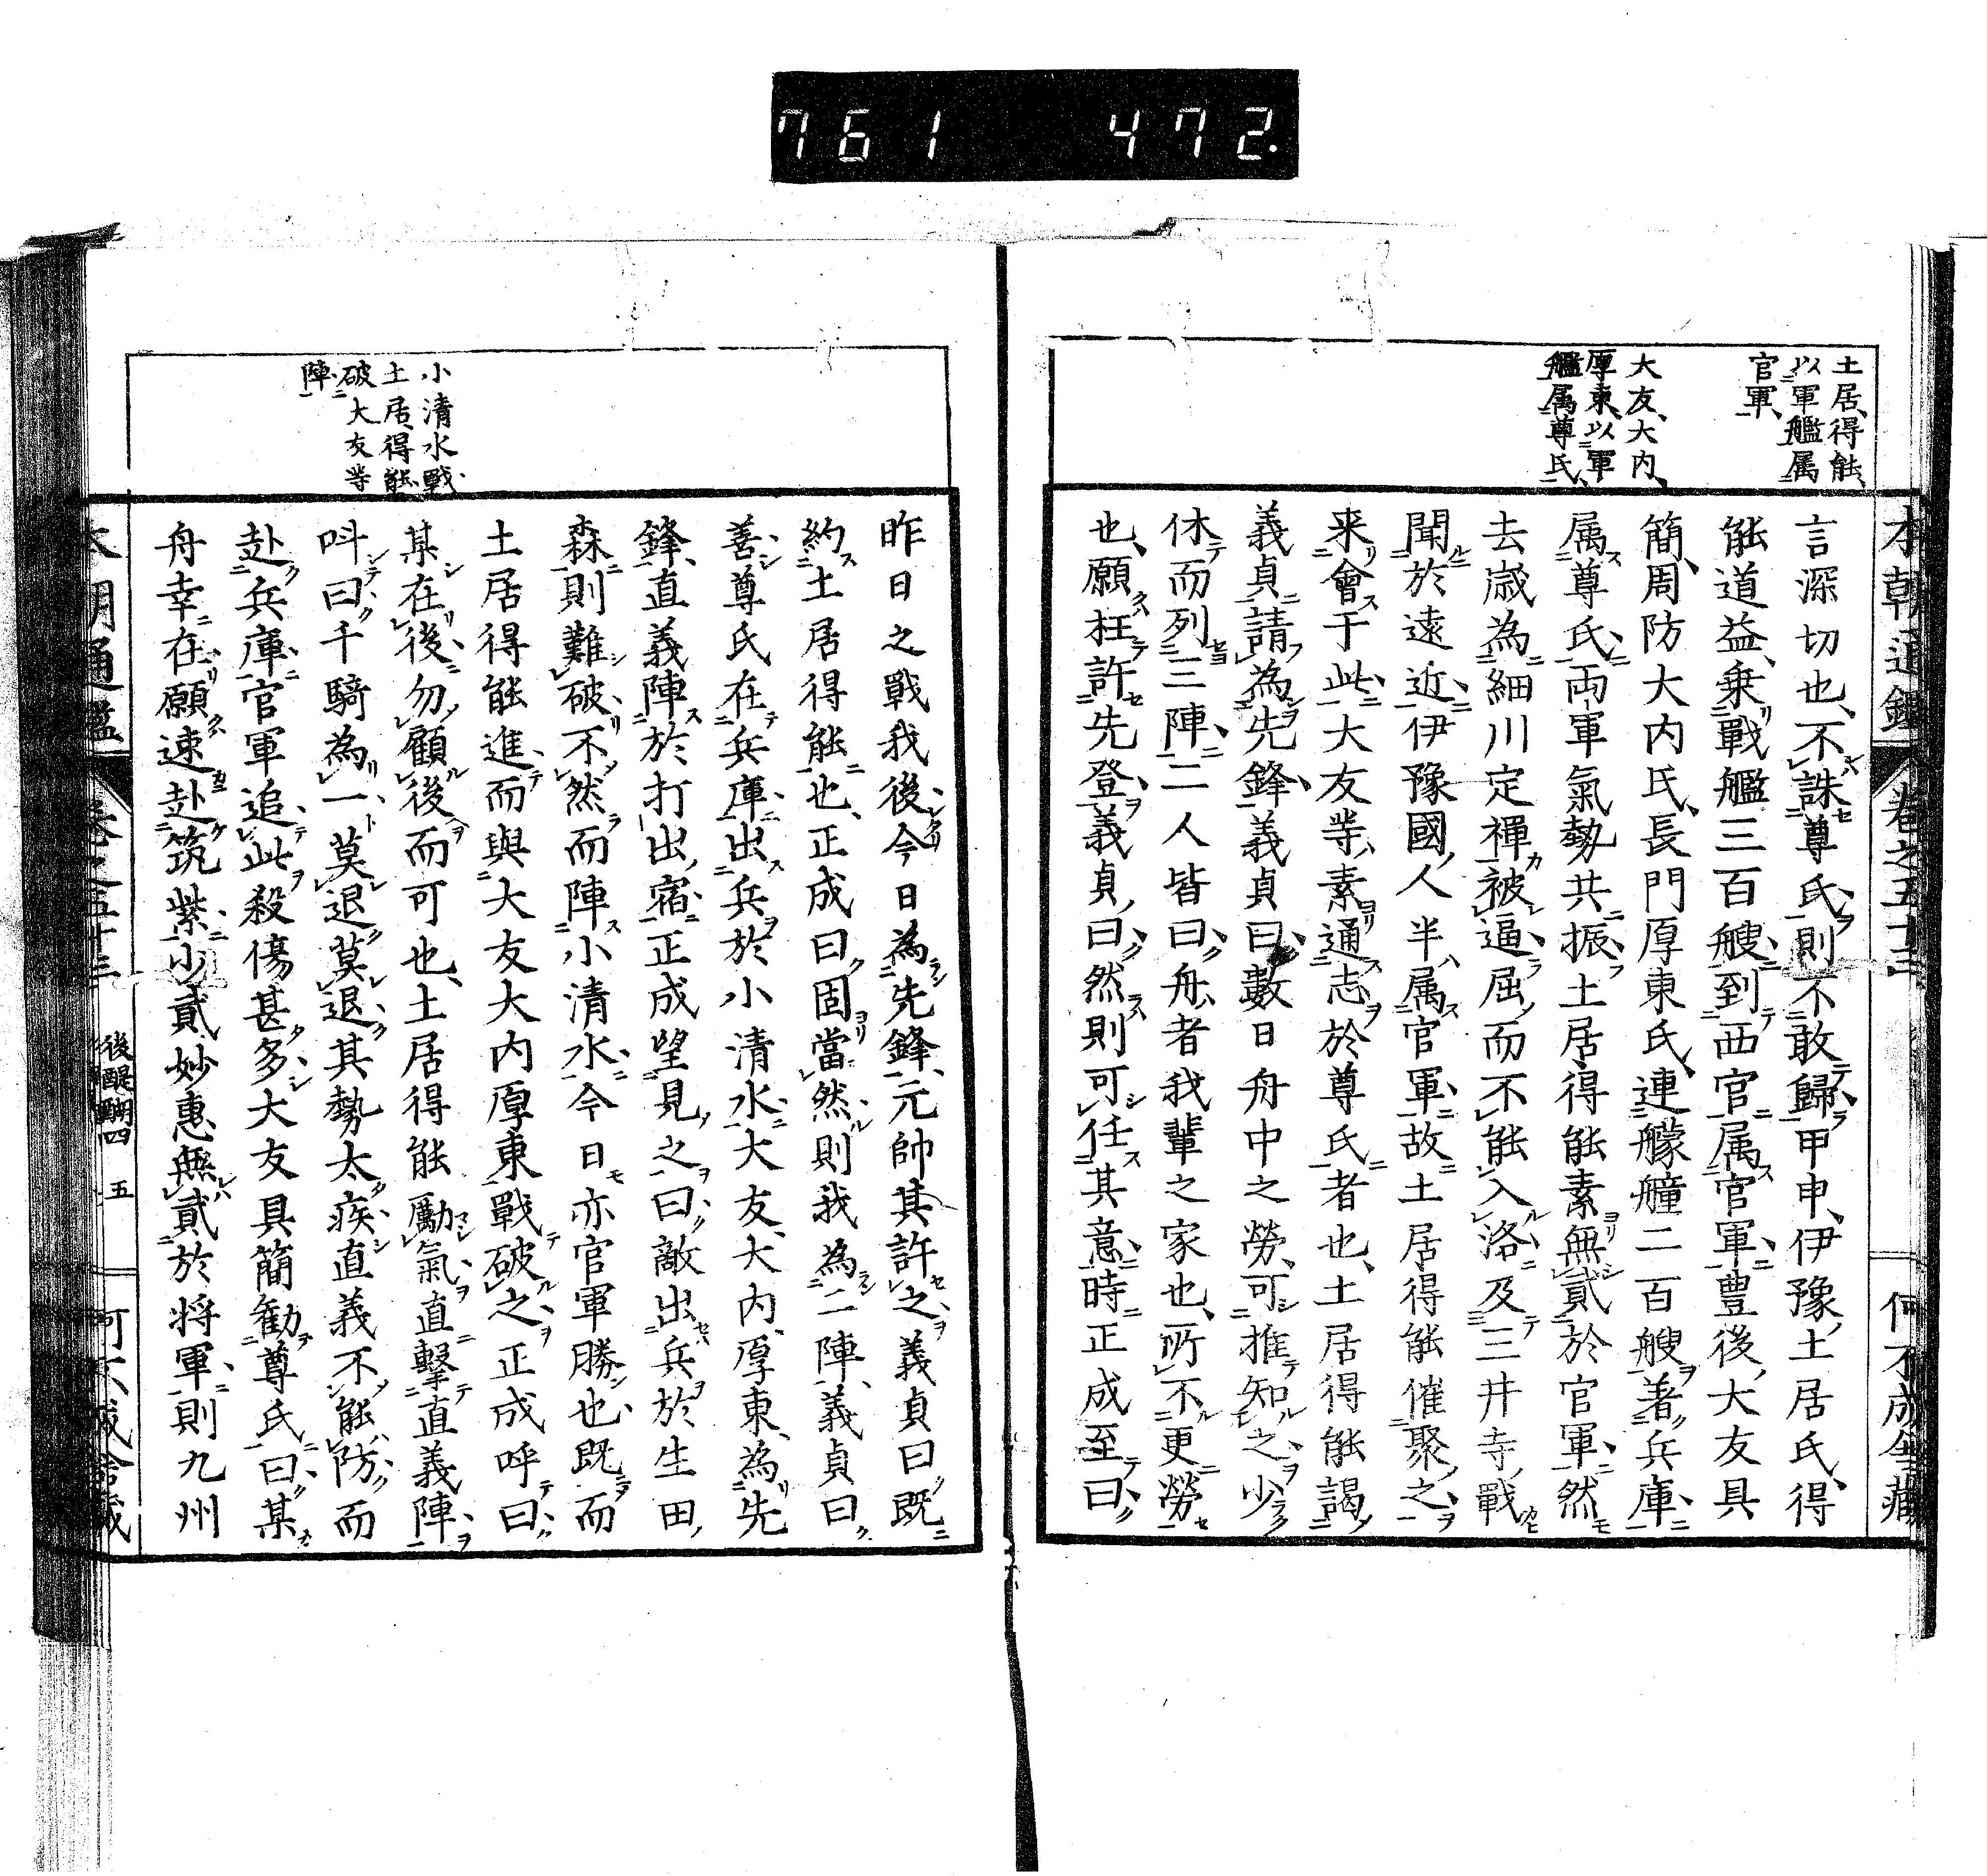 761 472.
土居、得能、
以軍艦属
官軍、
大友、大内、
厚東、以軍
艦属尊氏、
本朝通鑑 卷之五十三 何不成舎藏
言深切也、不誅尊氏、則不敢歸甲申、伊豫、土居氏、得
能道益、乗戰艦三百艘、到西官属官軍、豊後、大友具
簡、周防大内氏、長門厚東氏、連艨艟二百艘著兵庫
属尊氏、両軍氣勢共振、土居得能素無貳於官軍、然
去歳為細川定禪被逼屈、而不能入洛、及三井寺戰
聞於遠近、伊豫國、人半属官軍、故土居得能催聚之
来會于此、大友等、素通志於尊氏者也、土居得能謁
義貞請為先鋒、義貞曰、數日舟中之勞、可推知之、少
休而列三陣、二人皆曰、舟者我輩之家也、所不更勞
也、願枉許先登、義貞曰、然則可任其意、時正成至曰、
小清水戰、
土居、得能
破大友等
陣、
昨日之戰我後、今日為先鋒、元帥其許之、義貞曰既
約土居得能也、正成曰、固當然則我為二陣、義貞曰
善、尊氏在兵庫、出兵於小清水、大友、大内、厚東、為先
鋒、直義陣於打出宿、正成望見之曰、敵出兵於生田
森則難破、不然而陣小清水、今日亦官軍勝也、既而
土居得能進而與大友大内厚東戰破之、正成呼曰、
某在後、勿顧後而可也、土居得能勵氣直擊直義陣
呌曰、千騎為一、莫退莫退、其勢太疾、直義不能防、而
赴兵庫、官軍追此殺傷甚多、大友具簡勸尊氏曰、某
舟幸在、願速赴筑紫、少貳妙惠無貳於將軍、則九州
後醍醐四 五